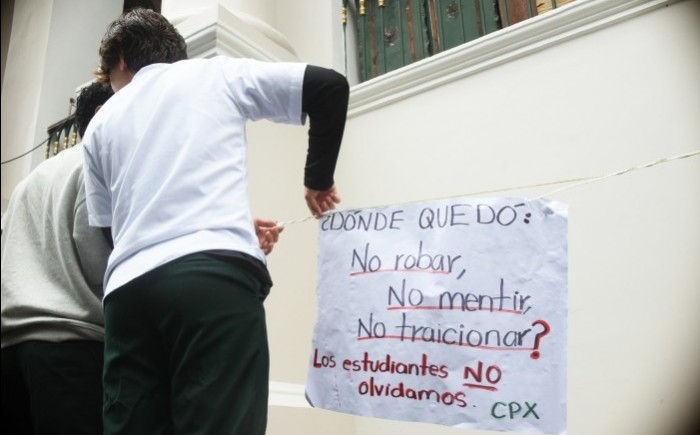 ¿DÓNDE QUEDÓ:
No robar,
No mentir,
No traicionar?
Los estudiantes NO
olvidamos.
CPX